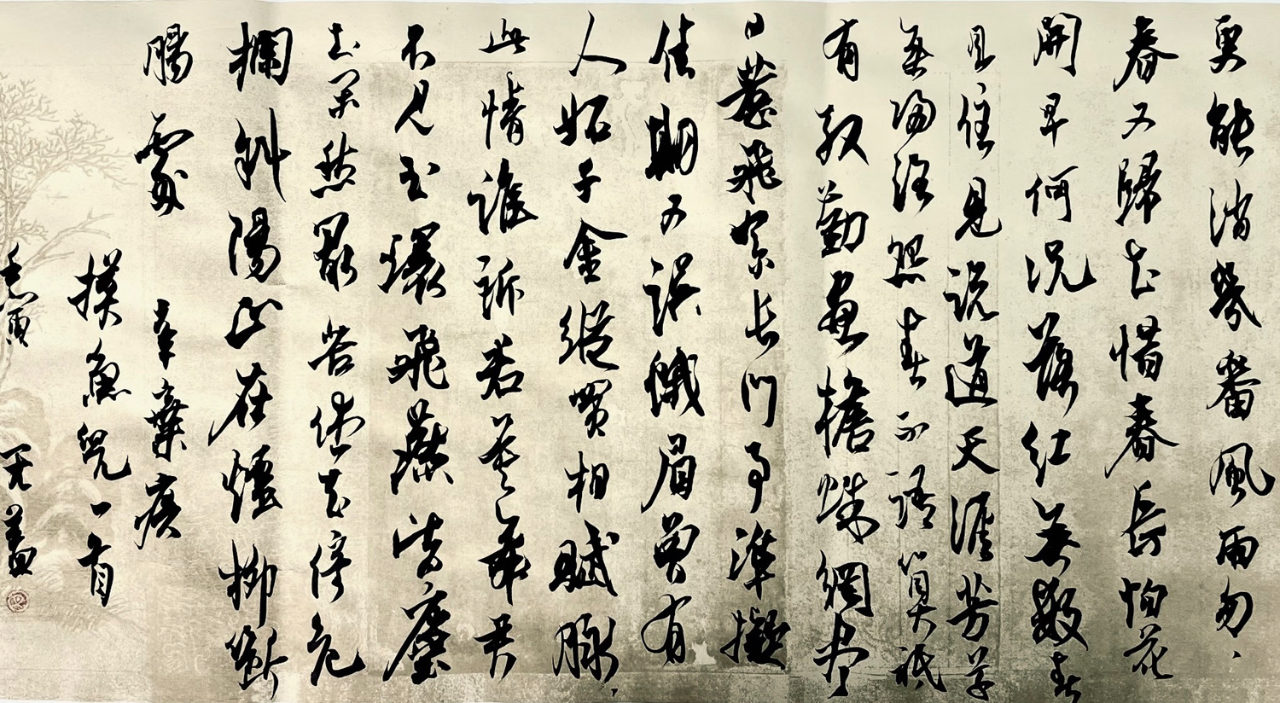 更能消幾番風雨匆、
春又歸去惜春長怕花
開早何況落紅無數春
且住見說道天涯芳草
無歸路怨春不語算祇
有殷勤畫檐蛛網盡
日惹飛絮長門事準擬
佳期又誤蛾眉曾有
人妬千金縱買相賦脉、
此情誰訴君莫舞君
不見玉環飛燕皆塵
土閒愁最苦休去倚危
欄斜陽正在煙柳斷
腸處
辛棄疾
摸魚兒一首
壬寅